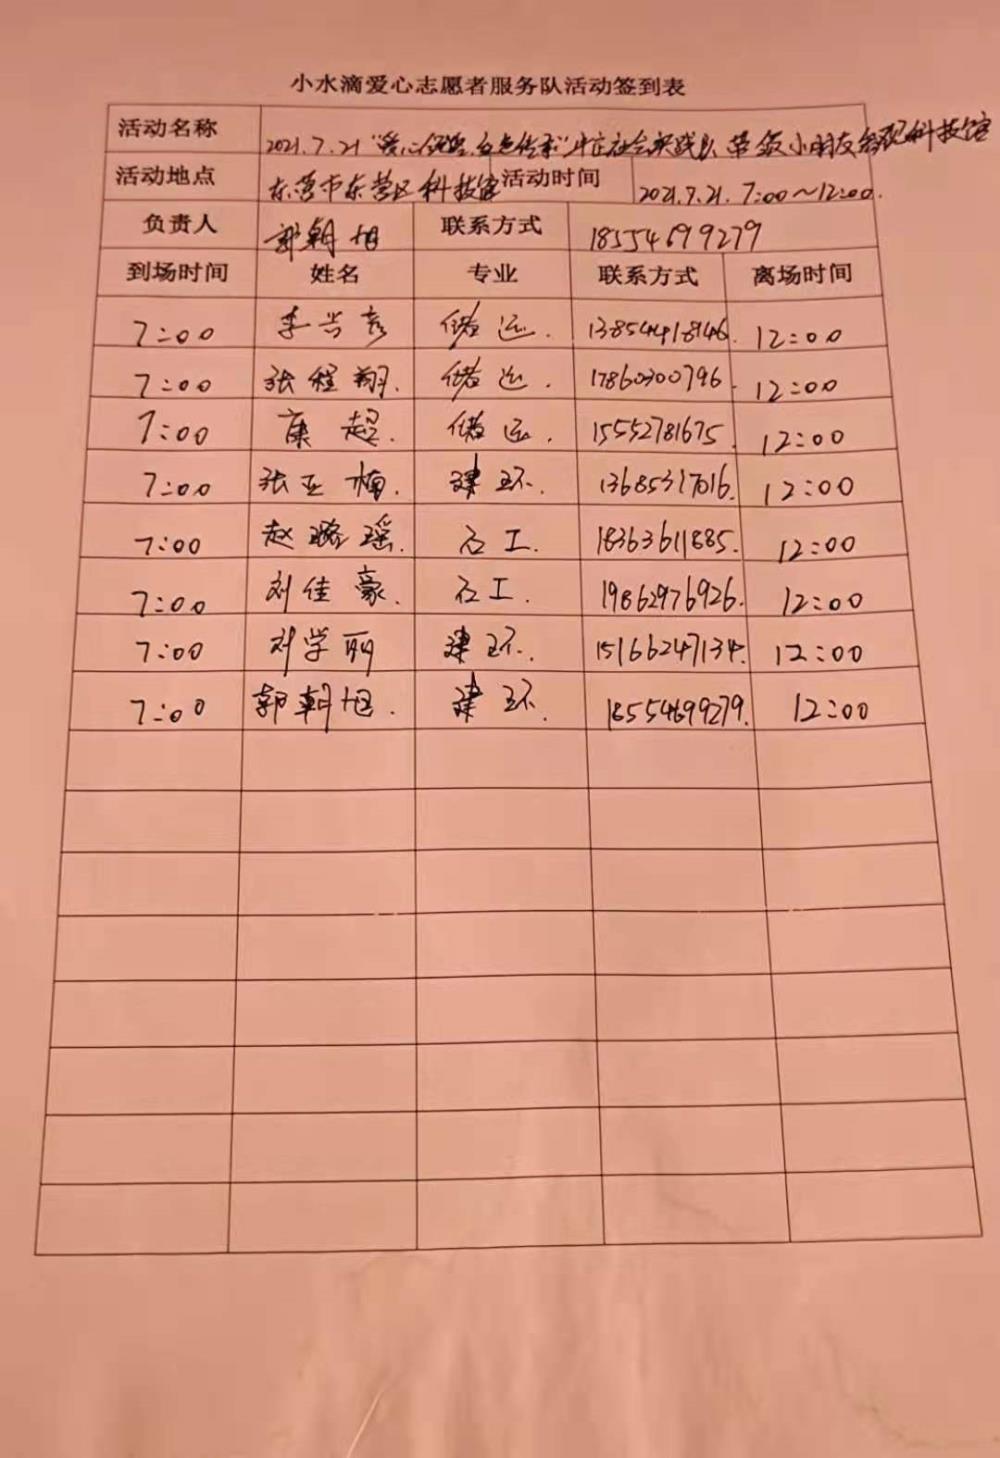 小水滴爱心志愿者服务队活动签到表
活动名称 2021.7.21 "爱心 红色传承" 社会实践队 带领小朋友参观科技馆
活动地点 东营市东营区科技馆 活动时间 2021.7.21. 7:00～12:00.
负责人 郭朝旭 联系方式 18554699279
到场时间 姓名 专业 联系方式 离场时间
7:00 李兴彦 储运. 13854418946. 12:00
7:00 张程翔. 储运. 17860300796. 12:00
7:00 康超. 储运. 15552781675. 12:00
7:00 张亚楠. 建环. 13685317016. 12:00
7:00 赵璐瑶. 石工. 18363611885. 12:00
7:00 刘佳豪. 石工. 19862976926. 12:00
7:00 刘学丽 建环. 15166247134. 12:00
7:00 郭朝旭. 建环. 18554699279. 12:00